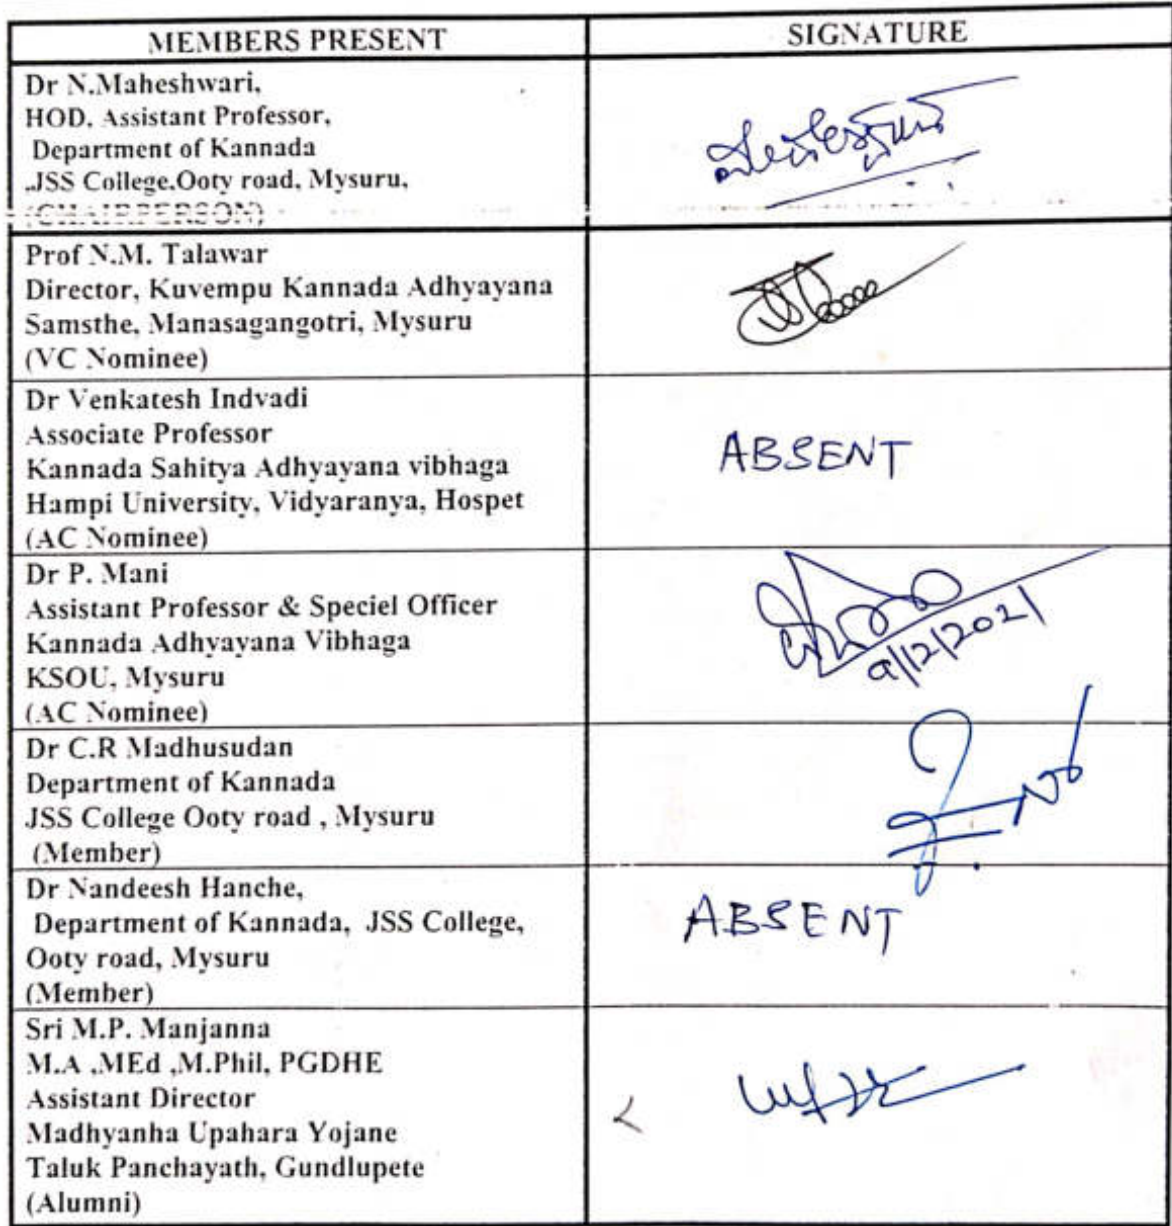 MEMBERS PRESENT
SIGNATURE
Dr N.Maheshwari,
HOD, Assistant Professor,
Department of Kannada
,JSS College.Ooty road, Mysuru,
(CHAIRPERSON)
Prof N.M. Talawar
Director, Kuvempu Kannada Adhyayana
Samsthe, Manasagangotri, Mysuru
(VC Nominee)
Dr Venkatesh Indvadi
Associate Professor
Kannada Sahitya Adhyayana vibhaga
Hampi University, Vidyaranya, Hospet
(AC Nominee)
ABSENT
Dr P. Mani
Assistant Professor & Speciel Officer
Kannada Adhyayana Vibhaga
KSOU, Mysuru
(AC Nominee)
9/12/2021
Dr C.R Madhusudan
Department of Kannada
JSS College Ooty road , Mysuru
(Member)
Dr Nandeesh Hanche,
Department of Kannada, JSS College,
Ooty road, Mysuru
(Member)
ABSENT
Sri M.P. Manjanna
M.A ,MEd ,M.Phil, PGDHE
Assistant Director
Madhyanha Upahara Yojane
Taluk Panchayath, Gundlupete
(Alumni)